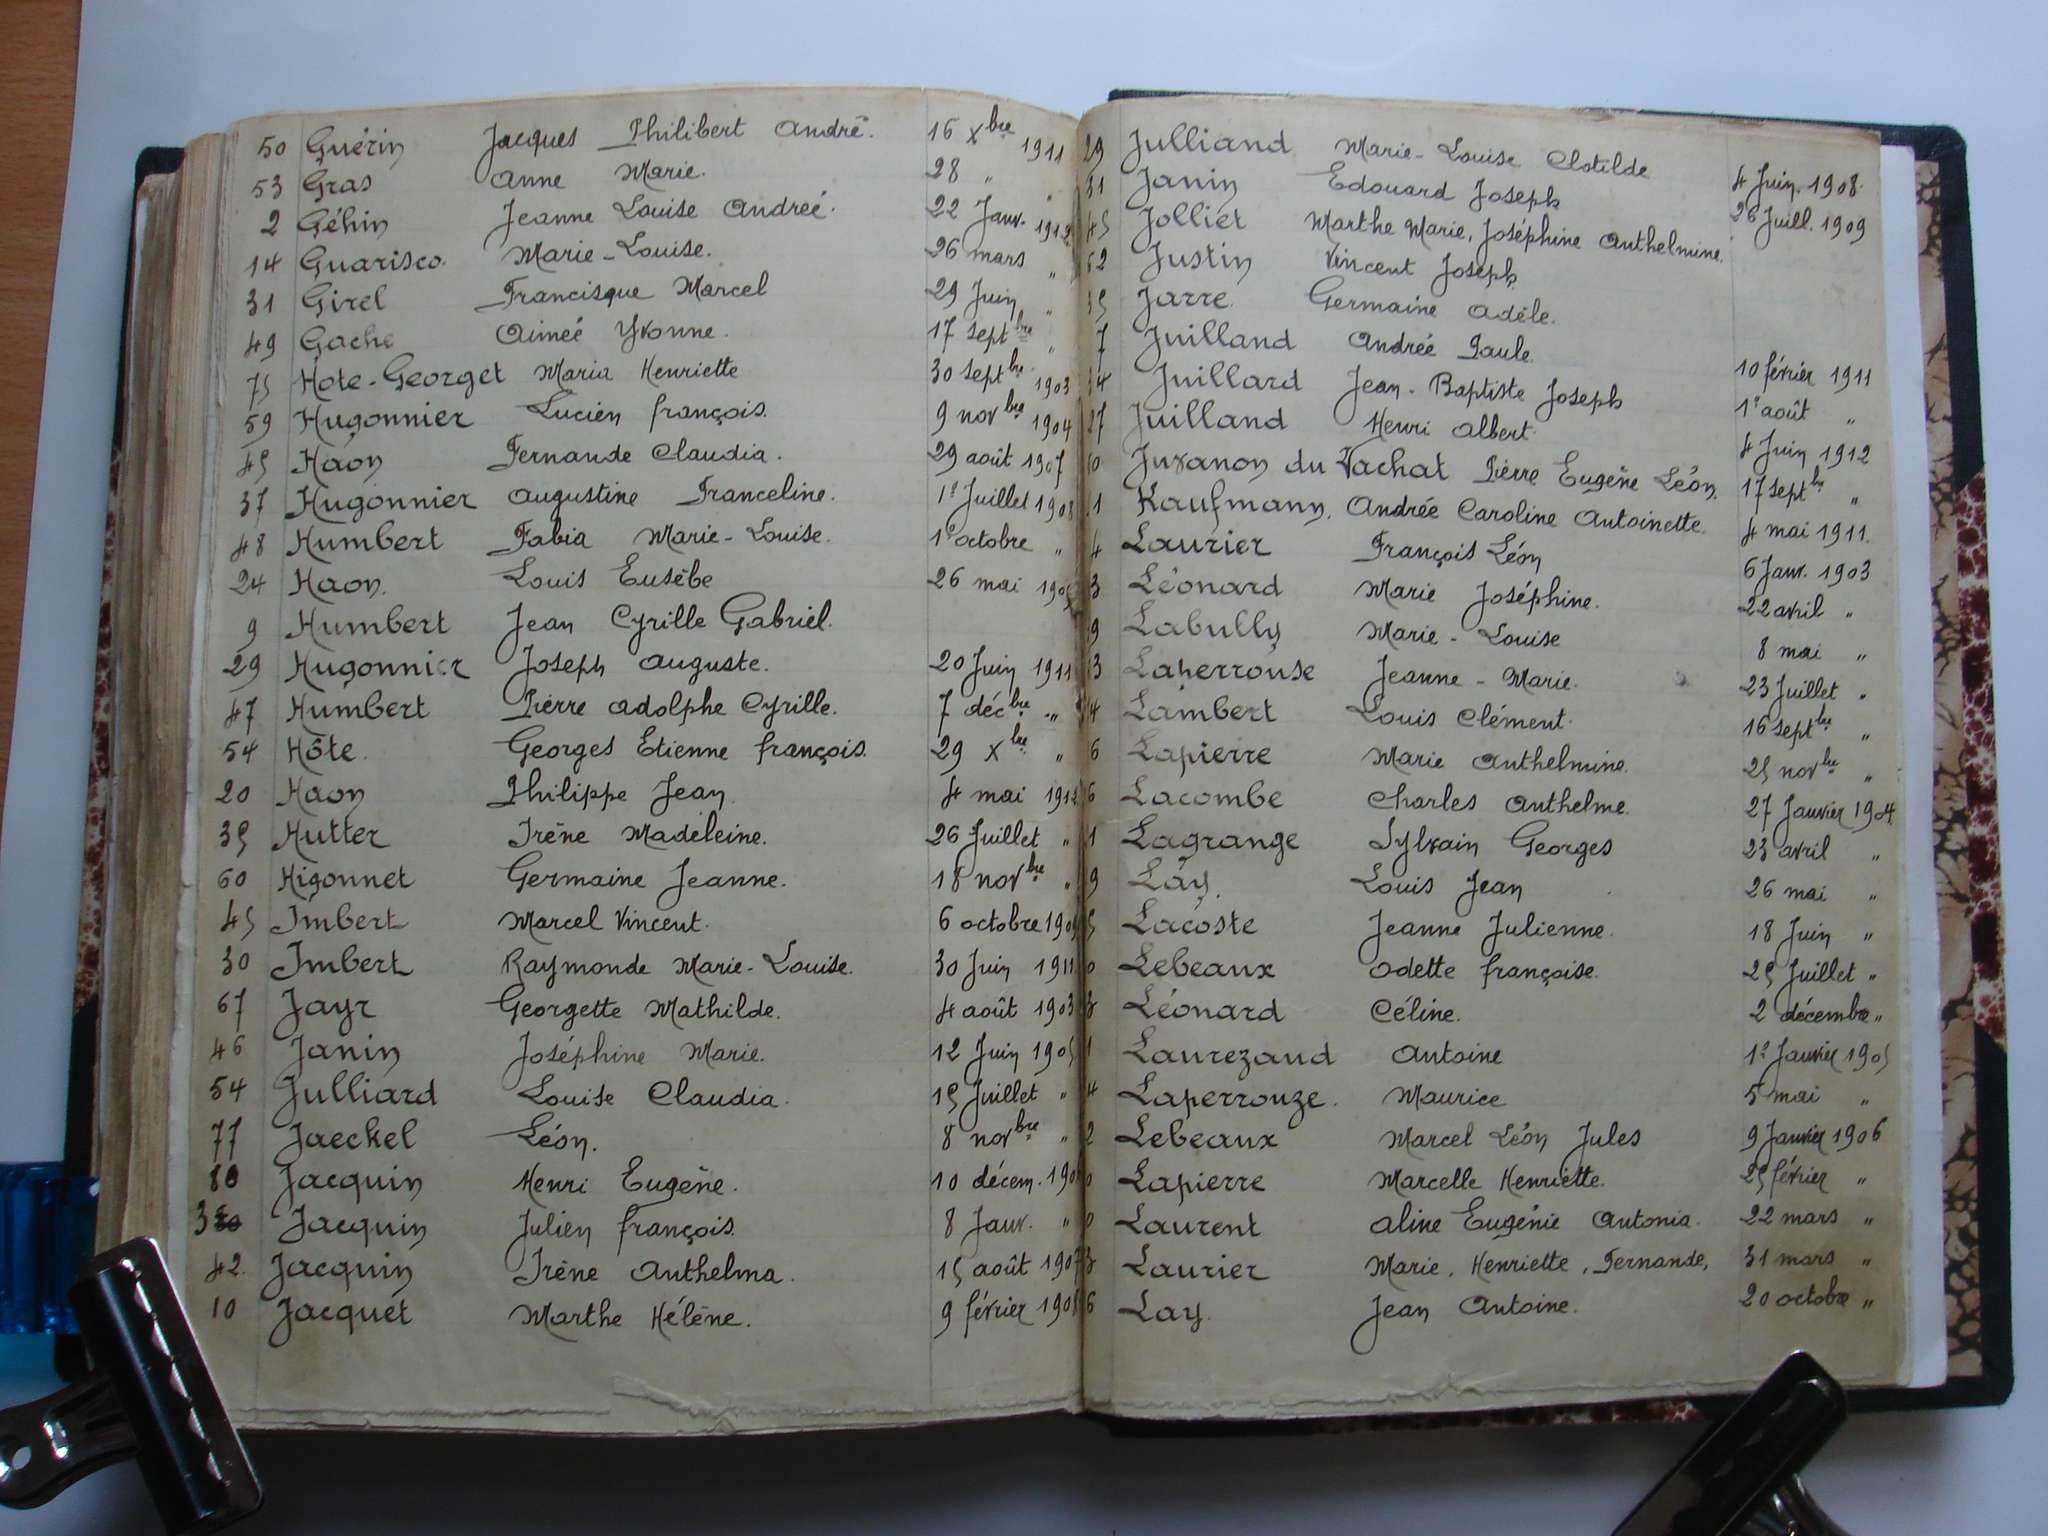 50 Guérin Jacques Philibert André. 16 Xbre 1911
53 Gras Anne Marie. 28 " "
2 Géhin Jeanne Louise Andreé. 22 Janv. 1912
14 Guarisco. Marie-Louise. 26 mars "
31 Girel Francisque Marcel 29 Juin "
49 Gache Aimeé Yvonne. 17 septbre "
75 Hote-Georget Maria Henriette 30 septbre 1903
59 Hugonnier Lucien françois. 9 novbre 1904
45 Haon Fernande Claudia. 29 août 1907
37 Hugonnier Augustine Franceline. 1er Juillet 1908
48 Humbert Fabia Marie-Louise. 1er octobre "
24 Haon. Louis Eusèbe 26 mai
9 Humbert Jean Cyrille Gabriel.
29 Hugonnier Joseph Auguste. 20 Juin 1911
47 Humbert Pierre Adolphe Cyrille. 7 décbre "
54 Hôte. Georges Etienne françois. 29 Xbre "
20 Haon Philippe Jean. 4 mai 1912
35 Hutter Irène Madeleine. 26 Juillet "
60 Higonnet Germaine Jeanne. 18 novbre "
45 Imbert Marcel Vincent. 6 octobre
30 Imbert Raymonde Marie-Louise. 30 Juin 1911
67 Jayr Georgette Mathilde. 4 août 1903
46 Janin Joséphine Marie. 12 Juin 1905
54 Julliard Louise Claudia. 15 Juillet "
77 Jaeckel Léon. 8 novbre "
80 Jacquin Henri Eugène. 10 décem.
3 Jacquin Julien françois. 8 Janv. "
42. Jacquin Irène Anthelma. 15 août 1907
10 Jacquet Marthe Hélène. 9 février
29 Julliand Marie-Louise Clotilde 4 Juin. 1908.
31 Janin Edouard Joseph 26 Juill. 1909
45 Jolliet Marthe Marie, Joséphine Anthelmine.
62 Justin Vincent Joseph
35 Jarre. Germaine Adèle.
7 Juilland Andrée Paule. 10 février 1911
34 Juillard Jean-Baptiste Joseph 1er août "
27 Juilland Henri Albert. 4 Juin 1912
0 Juvanon du Vachat Pierre Eugène Léon. 17 septbre "
1 Kaufmann. Andrée Caroline Antoinette. 4 mai 1911.
4 Laurier François Léon 6 Janv. 1903
3 Léonard Marie Joséphine. 22 avril "
9 Labully Marie-Louise 8 mai "
3 Laperrouse Jeanne-Marie. 23 Juillet "
4 Lambert Louis Clément. 16 septbre "
6 Lapierre Marie Anthelmine. 25 novbre "
6 Lacombe Charles Anthelme. 27 Janvier 1904
1 Lagrange Sylvain Georges 23 avril "
9 Lay. Louis Jean 26 mai "
5 Lacoste Jeanne Julienne. 18 Juin "
0 Lebeaux Odette françoise. 25 Juillet "
3 Léonard Céline. 2 décembre "
1 Laurezaud Antoine 1er Janvier 1905
4 Laperrouze. Maurice 5 mai "
2 Lebeaux Marcel Léon Jules 9 Janvier 1906
0 Lapierre Marcelle Henriette. 25 février "
0 Laurent Aline Eugénie Antonia. 22 mars "
3 Laurier Marie, Henriette, Fernande, 31 mars "
6 Lay. Jean Antoine. 20 octobre "